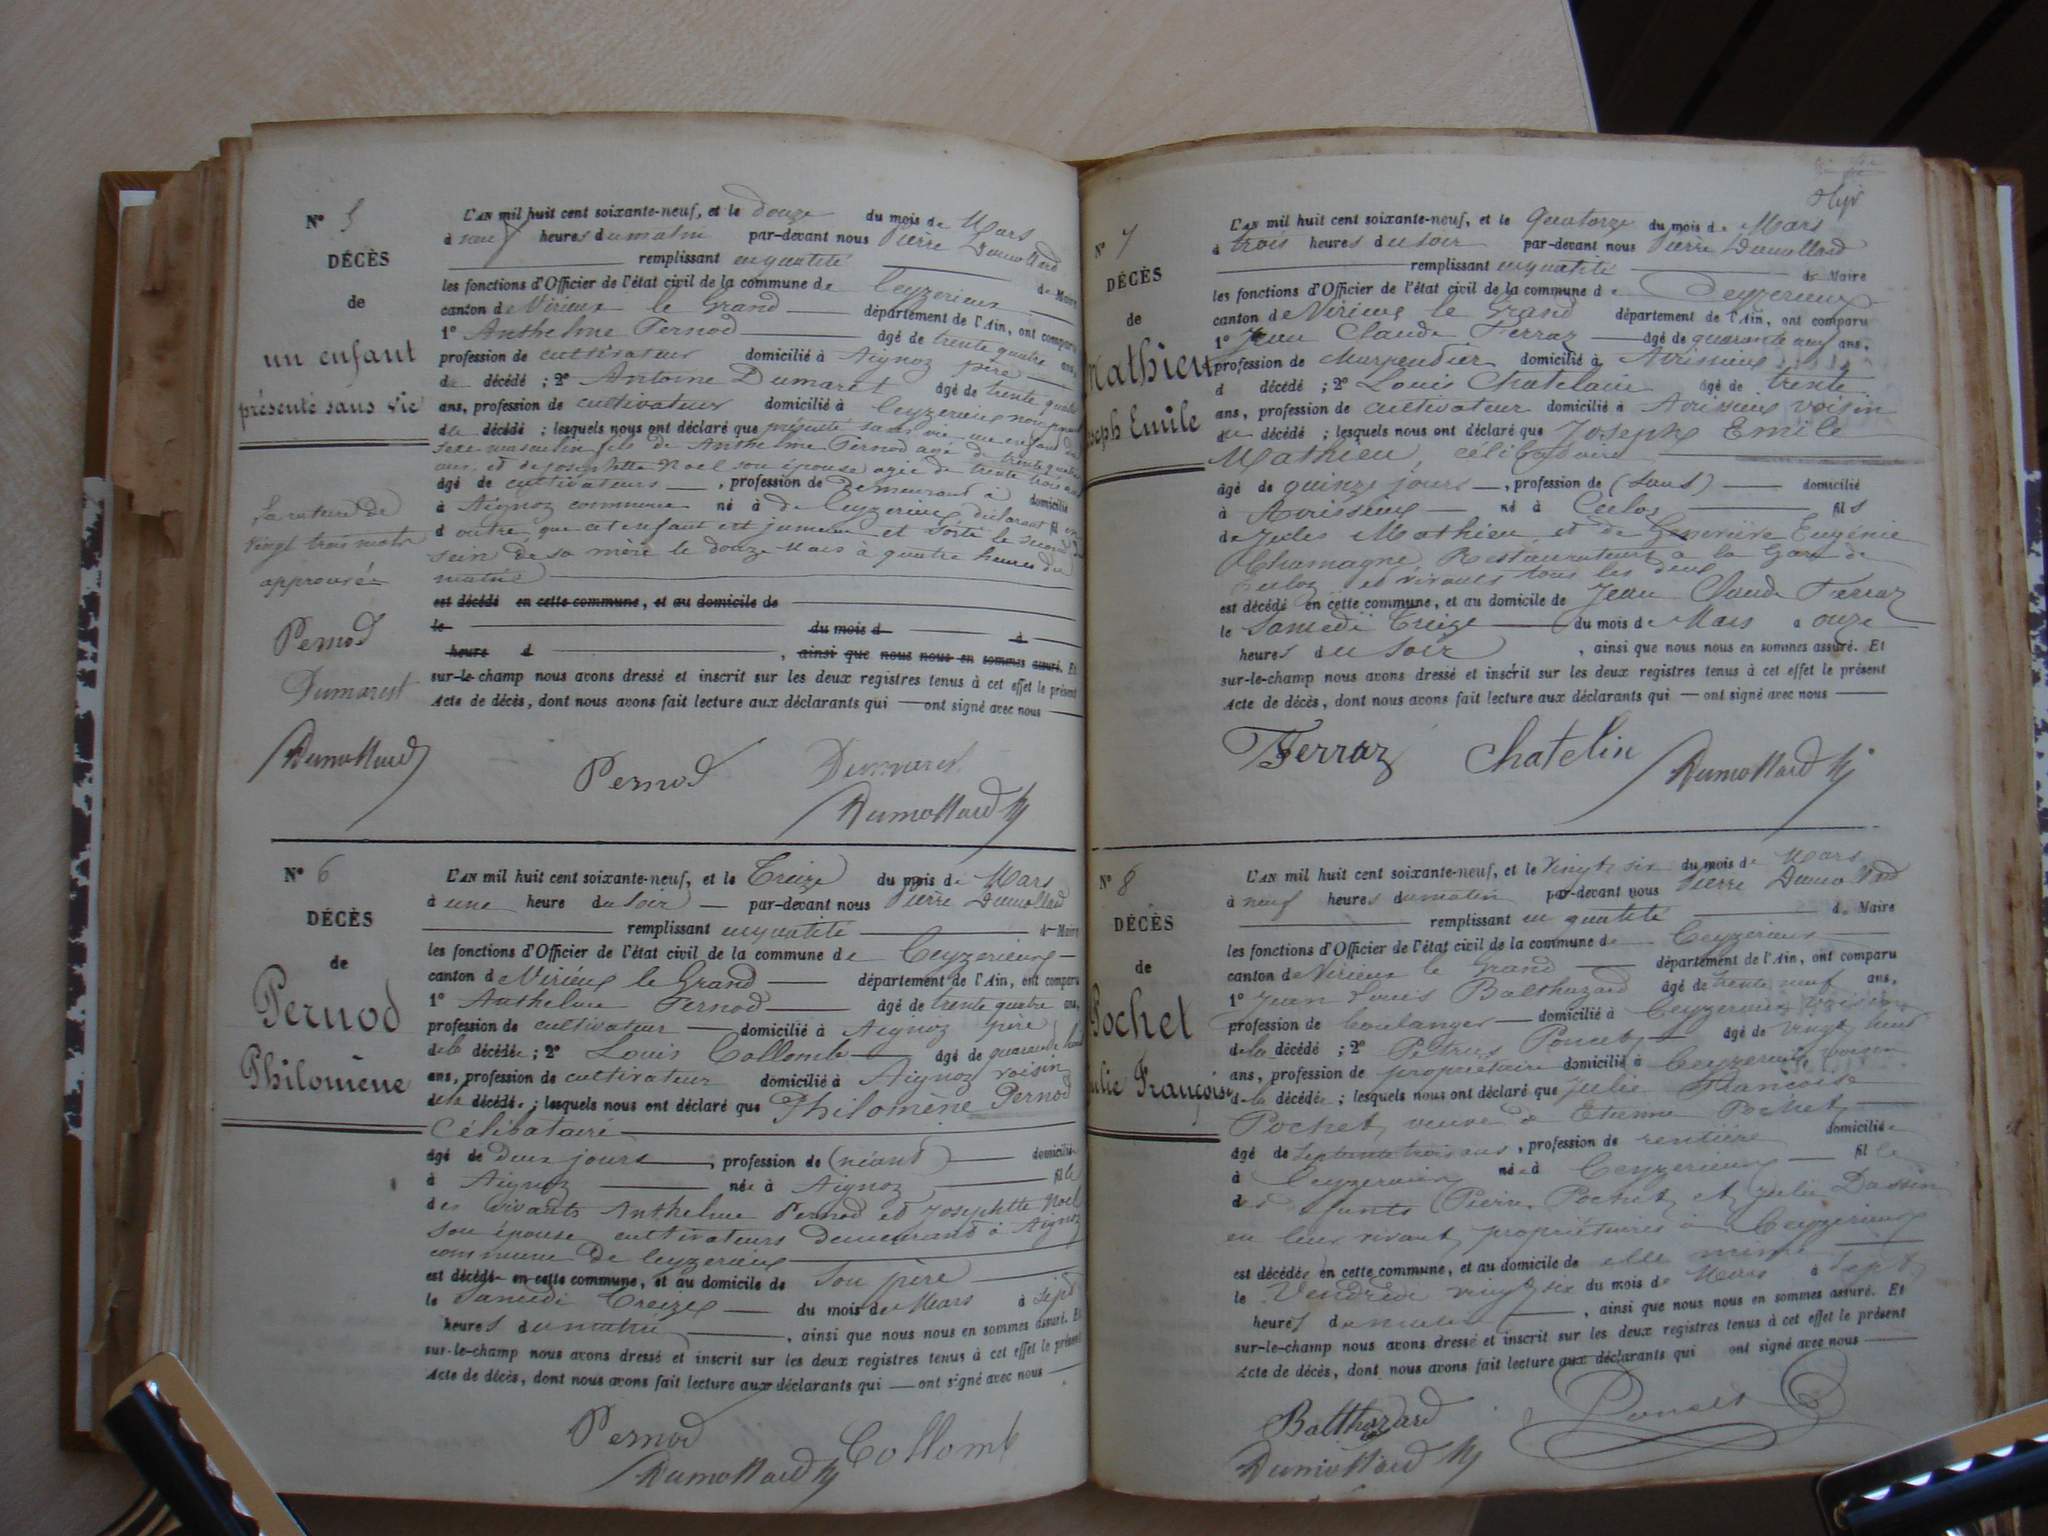 N° 5
DÉCÈS
de
un enfant
présenté sans vie
La rature de
vingt trois mots
approuvée
Pernod
Dumarest
Dumollard
L'AN mil huit cent soixante-neuf, et le douze du mois de Mars
à neuf heures du matin par-devant nous Pierre Dumollard
remplissant en qualité de Maire
les fonctions d'Officier de l'état civil de la commune de Ceyzerieux
canton de Virieux le Grand département de l'Ain, ont comparu
1° Anthelme Pernod âgé de trente quatre ans,
profession de cultivateur domicilié à Aignoz père
du décédé ; 2° Antoine Dumarest âgé de trente quatre
ans, profession de cultivateur domicilié à Ceyzerieux non parent
du décédé ; lesquels nous ont déclaré que présenté sans vie un enfant du
sexe masculin fils de Anthelme Pernod agé de trente quatre
ans et de Josephtte Noel son épouse agée de trente trois ans
âgé de cultivateurs , profession de demeurant à domicilié
à Aignoz commune né à de Ceyzerieux déclarant fil en
d outre que cet enfant est jumeau et sorti le second du
sein de sa mère le douze Mars à quatre heures du
matin
est décédé en cette commune, et au domicile de
le du mois d à
heure d , ainsi que nous nous en sommes assuré. Et
sur-le-champ nous avons dressé et inscrit sur les deux registres tenus à cet effet le présent
Acte de décès, dont nous avons fait lecture aux déclarants qui — ont signé avec nous
Pernod Dumarest
Dumollard
N° 6
DÉCÈS
de
Pernod
Philomène
L'AN mil huit cent soixante-neuf, et le treize du mois de Mars
à une heure du soir par-devant nous Pierre Dumollard
remplissant en qualité de Maire
les fonctions d'Officier de l'état civil de la commune de Ceyzerieux
canton de Virieux le Grand département de l'Ain, ont comparu
1° Anthelme Pernod âgé de trente quatre ans,
profession de cultivateur domicilié à Aignoz père
de la décédée ; 2° Louis Collomb âgé de quarante
ans, profession de cultivateur domicilié à Aignoz voisin
de la décédée ; lesquels nous ont déclaré que Philomène Pernod
Célibataire
âgé de deux jours , profession de (néant) domiciliée
à Aignoz née à Aignoz fille
des vivants Anthelme Pernod et Josephtte Noel
son épouse, cultivateurs demeurant à Aignoz
commune de Ceyzerieux
est décédée en cette commune, et au domicile de son père
le Samedi treize du mois de Mars à sept
heures du matin , ainsi que nous nous en sommes assuré. Et
sur-le-champ nous avons dressé et inscrit sur les deux registres tenus à cet effet le présent
Acte de décès, dont nous avons fait lecture aux déclarants qui — ont signé avec nous
Pernod Collomb
Dumollard
N° 7
DÉCÈS
de
Mathieu
Joseph Emile
L'AN mil huit cent soixante-neuf, et le Quatorze du mois de Mars
à trois heures du soir par-devant nous Pierre Dumollard
remplissant en qualité de Maire
les fonctions d'Officier de l'état civil de la commune de Ceyzerieux
canton de Virieux le Grand département de l'Ain, ont comparu
1° Jean Claude Ferraz âgé de quarante neuf ans,
profession de domicilié à Avrissieux
d décédé ; 2° Louis Chatelain âgé de trente
ans, profession de cultivateur domicilié à Avrissieux voisin
du décédé ; lesquels nous ont déclaré que Joseph Emile
Mathieu, célibataire
âgé de quinze jours , profession de (Sans) domicilié
à Avrissieux né à Culoz fils
de Jules Mathieu et de Geneviève Eugénie
Chamagne, Restaurateurs à la Gare de
Culoz, et vivants tous les deux
est décédé en cette commune, et au domicile de Jean Claude Ferraz
le Samedi treize du mois de Mars à onze
heures du soir , ainsi que nous nous en sommes assuré. Et
sur-le-champ nous avons dressé et inscrit sur les deux registres tenus à cet effet le présent
Acte de décès, dont nous avons fait lecture aux déclarants qui — ont signé avec nous
Ferraz Chatelin Dumollard
N° 8
DÉCÈS
de
Pochet
Julie Françoise
L'AN mil huit cent soixante-neuf, et le vingt six du mois de Mars
à neuf heures du matin par-devant nous Pierre Dumollard
remplissant en qualité de Maire
les fonctions d'Officier de l'état civil de la commune de Ceyzerieux
canton de Virieux le Grand département de l'Ain, ont comparu
1° Jean Louis Balthazard âgé de trente neuf ans,
profession de boulanger domicilié à Ceyzerieux voisin
de la décédé ; 2° Petrus Poncet âgé de vingt huit
ans, profession de propriétaire domicilié à Ceyzerieux voisin
de la décédée ; lesquels nous ont déclaré que Julie Françoise
Pochet, veuve d Etienne Pochet
âgé de septante trois ans , profession de rentière domiciliée
à Ceyzerieux née à Ceyzerieux fille
des défunts Pierre Pochet et Julie Dassin
en leur vivant propriétaires à Ceyzerieux
est décédée en cette commune, et au domicile de elle même
le Vendredi vingt six du mois de Mars à sept
heures du matin , ainsi que nous nous en sommes assuré. Et
sur-le-champ nous avons dressé et inscrit sur les deux registres tenus à cet effet le présent
Acte de décès, dont nous avons fait lecture aux déclarants qui ont signé avec nous
Balthazard Poncet
Dumollard